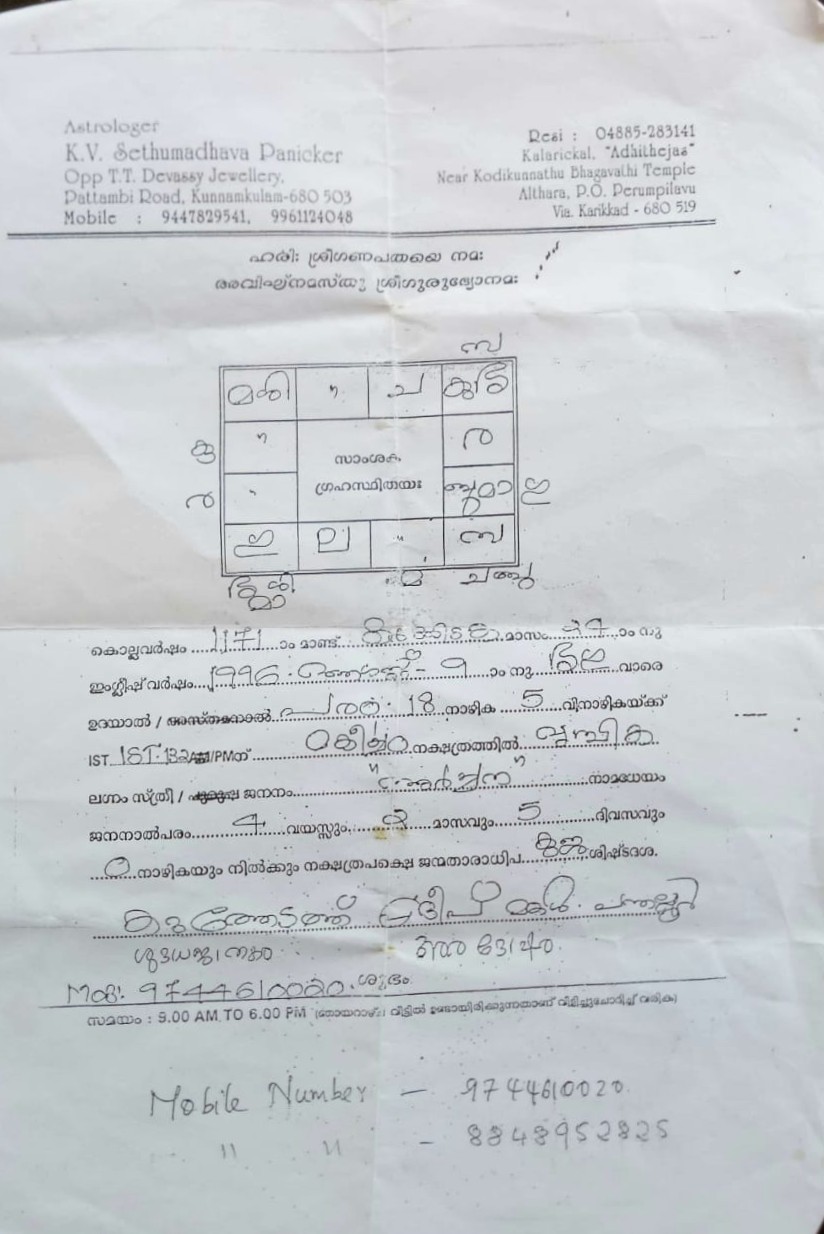 Astrologer
K.V. Sethumadhava Panicker
Opp T.T. Devassy Jewellery,
Pattambi Road, Kunnamkulam-680 503
Mobile : 9447829541, 9961124048
Resi : 04885-283141
Kalarickal, "Adhithejas"
Near Kodikunnathu Bhagavathi Temple
Althara, P.O. Perumpilavu
Via. Karikkad - 680 519
ഹരിഃ ശ്രീഗണപതയെ നമഃ
അവിഘ്നമസ്തു ശ്രീഗുരുഭ്യോനമഃ
സാംശക.
ഗ്രഹസ്ഥിതയഃ
കൊല്ലവർഷം 1171 ാം മാണ്ട് കർക്കിടകം മാസം 27 ാം നു
ഇംഗ്ലീഷ് വർഷം 1996 ആഗസ്റ്റ് 9 ാം നു വാരെ
ഉദയാൽ / അസ്തമനാൽ പരത 18 നാഴിക 5 വിനാഴികയ്ക്ക്
IST IST 1.32 AM/PMന് മകീര്യം നക്ഷത്രത്തിൽ വൃശ്ചിക
ലഗ്നം സ്ത്രീ / പുരുഷ ജനനം നാമധേയം
ജനനാൽപരം 4 വയസ്സും 2 മാസവും 5 ദിവസവും
0 നാഴികയും നിൽക്കും നക്ഷത്രപക്ഷെ ജന്മതാരാധിപ കുജ ശിഷ്ടദശ.
പ്രദീപ് മകൾ
Mob: 9744610020. ശുഭം
സമയം : 9.00 AM. TO 6.00 PM (ഞായറാഴ്ച വീട്ടിൽ ഉണ്ടായിരിക്കുന്നതാണ് വിളിച്ചുചോദിച്ച് വരിക)
Mobile Number - 9744610020
" " - 8848952825